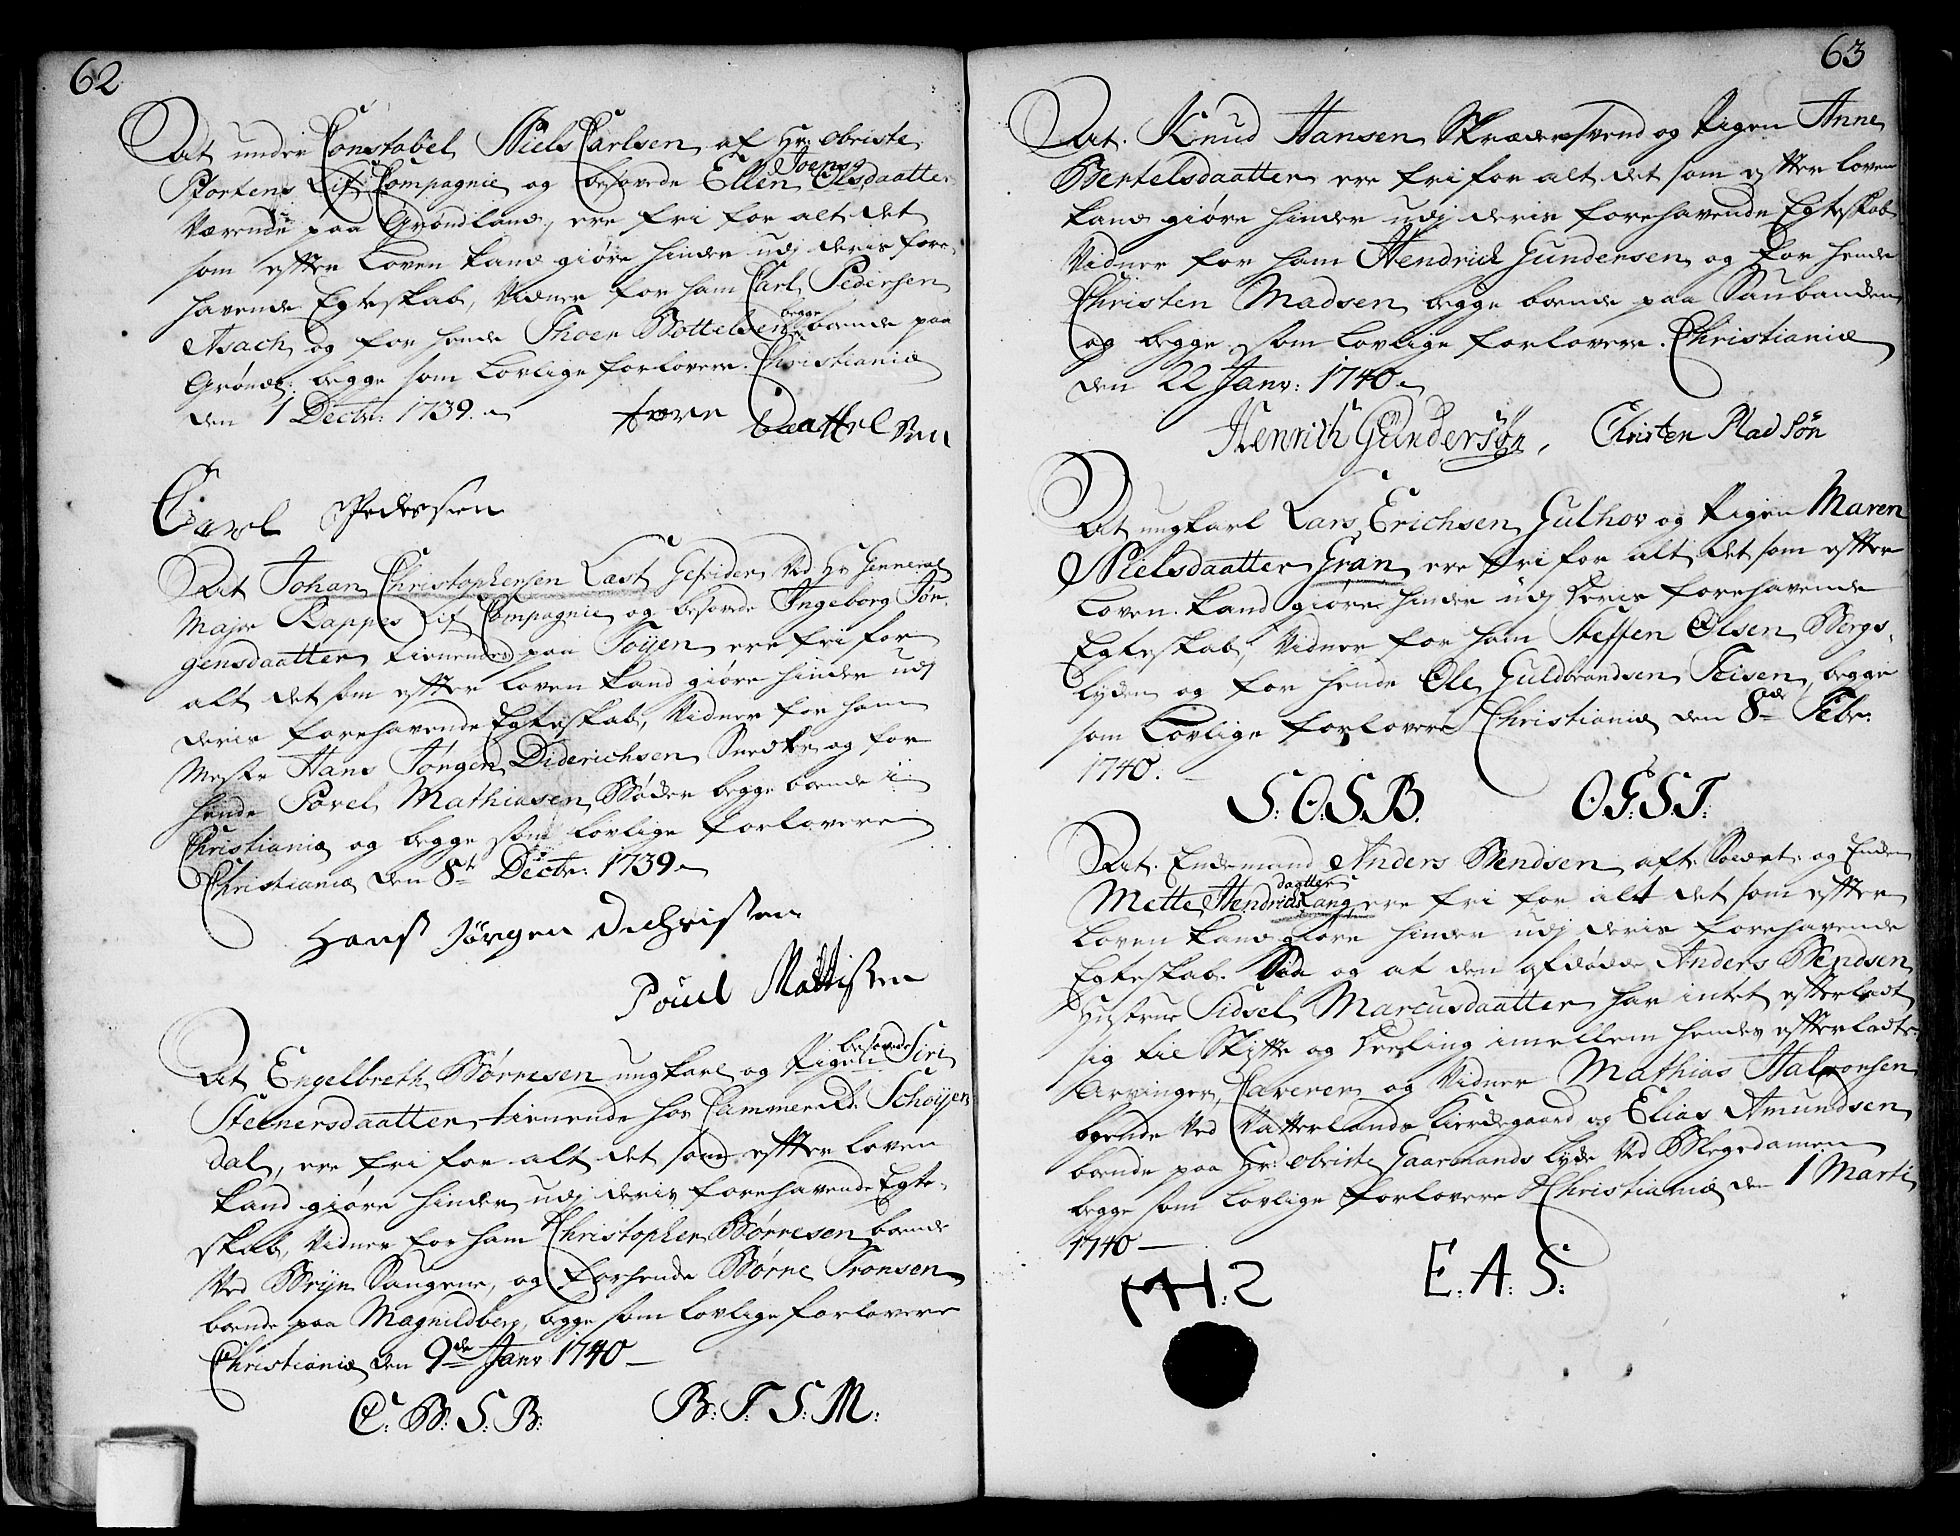 62
At under Constabel Niels Carlsen af Hr: obriste
Stortens Lif Compagnie og besovede Ellen Olsdaatter
Værende paa Grøndland, ere fri for alt det
som efter Loven kand giøre hinder udj deris fore,
havende Egteskab, Vidner for ham Carl Pedersen
Asach og for hende Thoer Bottelsen begge boende paa
Grønd: begge som Lovlige forlovere. Christiania
den 1 Decbr: 1739.
tore Baattelsen
Carl Pedersen
At Johan Christophersen Last Gefrider Ved Hr General
Major Rappes Lif Compagnie og besovede Ingeborg Jør,
gensdaatter tienende paa Toÿen ere fri for
alt det som efter Loven kand giøre hinder udj
deris forehavende Egteskab, Vidner for ham
Mester Hans Jørgen Diderichsen Snedker og for
hende Povel Mathiasen Bøder begge boende i
Christiania og begge som lovlige forlovere
Christiania den 8t Decbr: 1739
Hans Jørgen
Pouel Mattissen
At Engelbreth Børresen ungkarl og Pigen besovede Siri
Steenersdaatter tienende hos Cammer R: Schöÿen
dal, ere fri for alt det som efter loven
kand giøre hinder udj deris forehavende Egte,
skab, Vidner for ham Christopher Børresen boende
Ved Brÿn Saugene, og for hende Børne Tronsen
boende paa Magnildberg, begge som lovlige forlovere
Christiania den 9de Janv 1740
C: B: S: B:
B: T: S: M:
63
At. Knud Hansen Skrædersvend og Pigen Anne
Bertelsdaatter ere fri for alt det som efter loven
kand giøre hinder udj deris forehavende Egteskab
Vidner for ham Hendrick Gundersen og for hende
Christen Madsen begge boende paa Saubanden
og begge som lovlige forlovere. Christiania
den 22 Janv: 1740
Henrich Gündersøn, Christen Madsøn
At ungkarl Lars Erichsen Gulhov og Pigen Maren
Nielsdaatter Gran ere fri for alt det som efter
Loven kand giøre hinder udj deris forehavende
Egteskab, Vidner for ham Steffen Olsen Bergs,
lyden og for hende Ole Guldbrandsen Teisen, begge
som Lovlige forlovere Christiania den 8de Febr:
1740.
S: O: S: B.
O: G: S: T:
At. Enckemand Anders Bendsen aft: Soldat og Encken
Mette Hendrichsdaatter Lang ere fri for alt det som efter
Loven kand giøre hinder udj deris forehavende
Egteskab. Saa og at den afdøde Anders Bendsen
Hustrue Sidsel Marcusdaatter har intet efterladt
sig til Skifte og Deeling imellem hendes efterladte
Arvinger, Caverer og Vidner Mathias Halvorsen
boende Ved Vatterlands Kierdegaard og Elias Amundsen
boende paa Hr: obriste Gaarmands lyde Ved Blegedamen
begge som lovlige forlovere Christiania den 1 Marti
1740
M H: S
E: A: S: